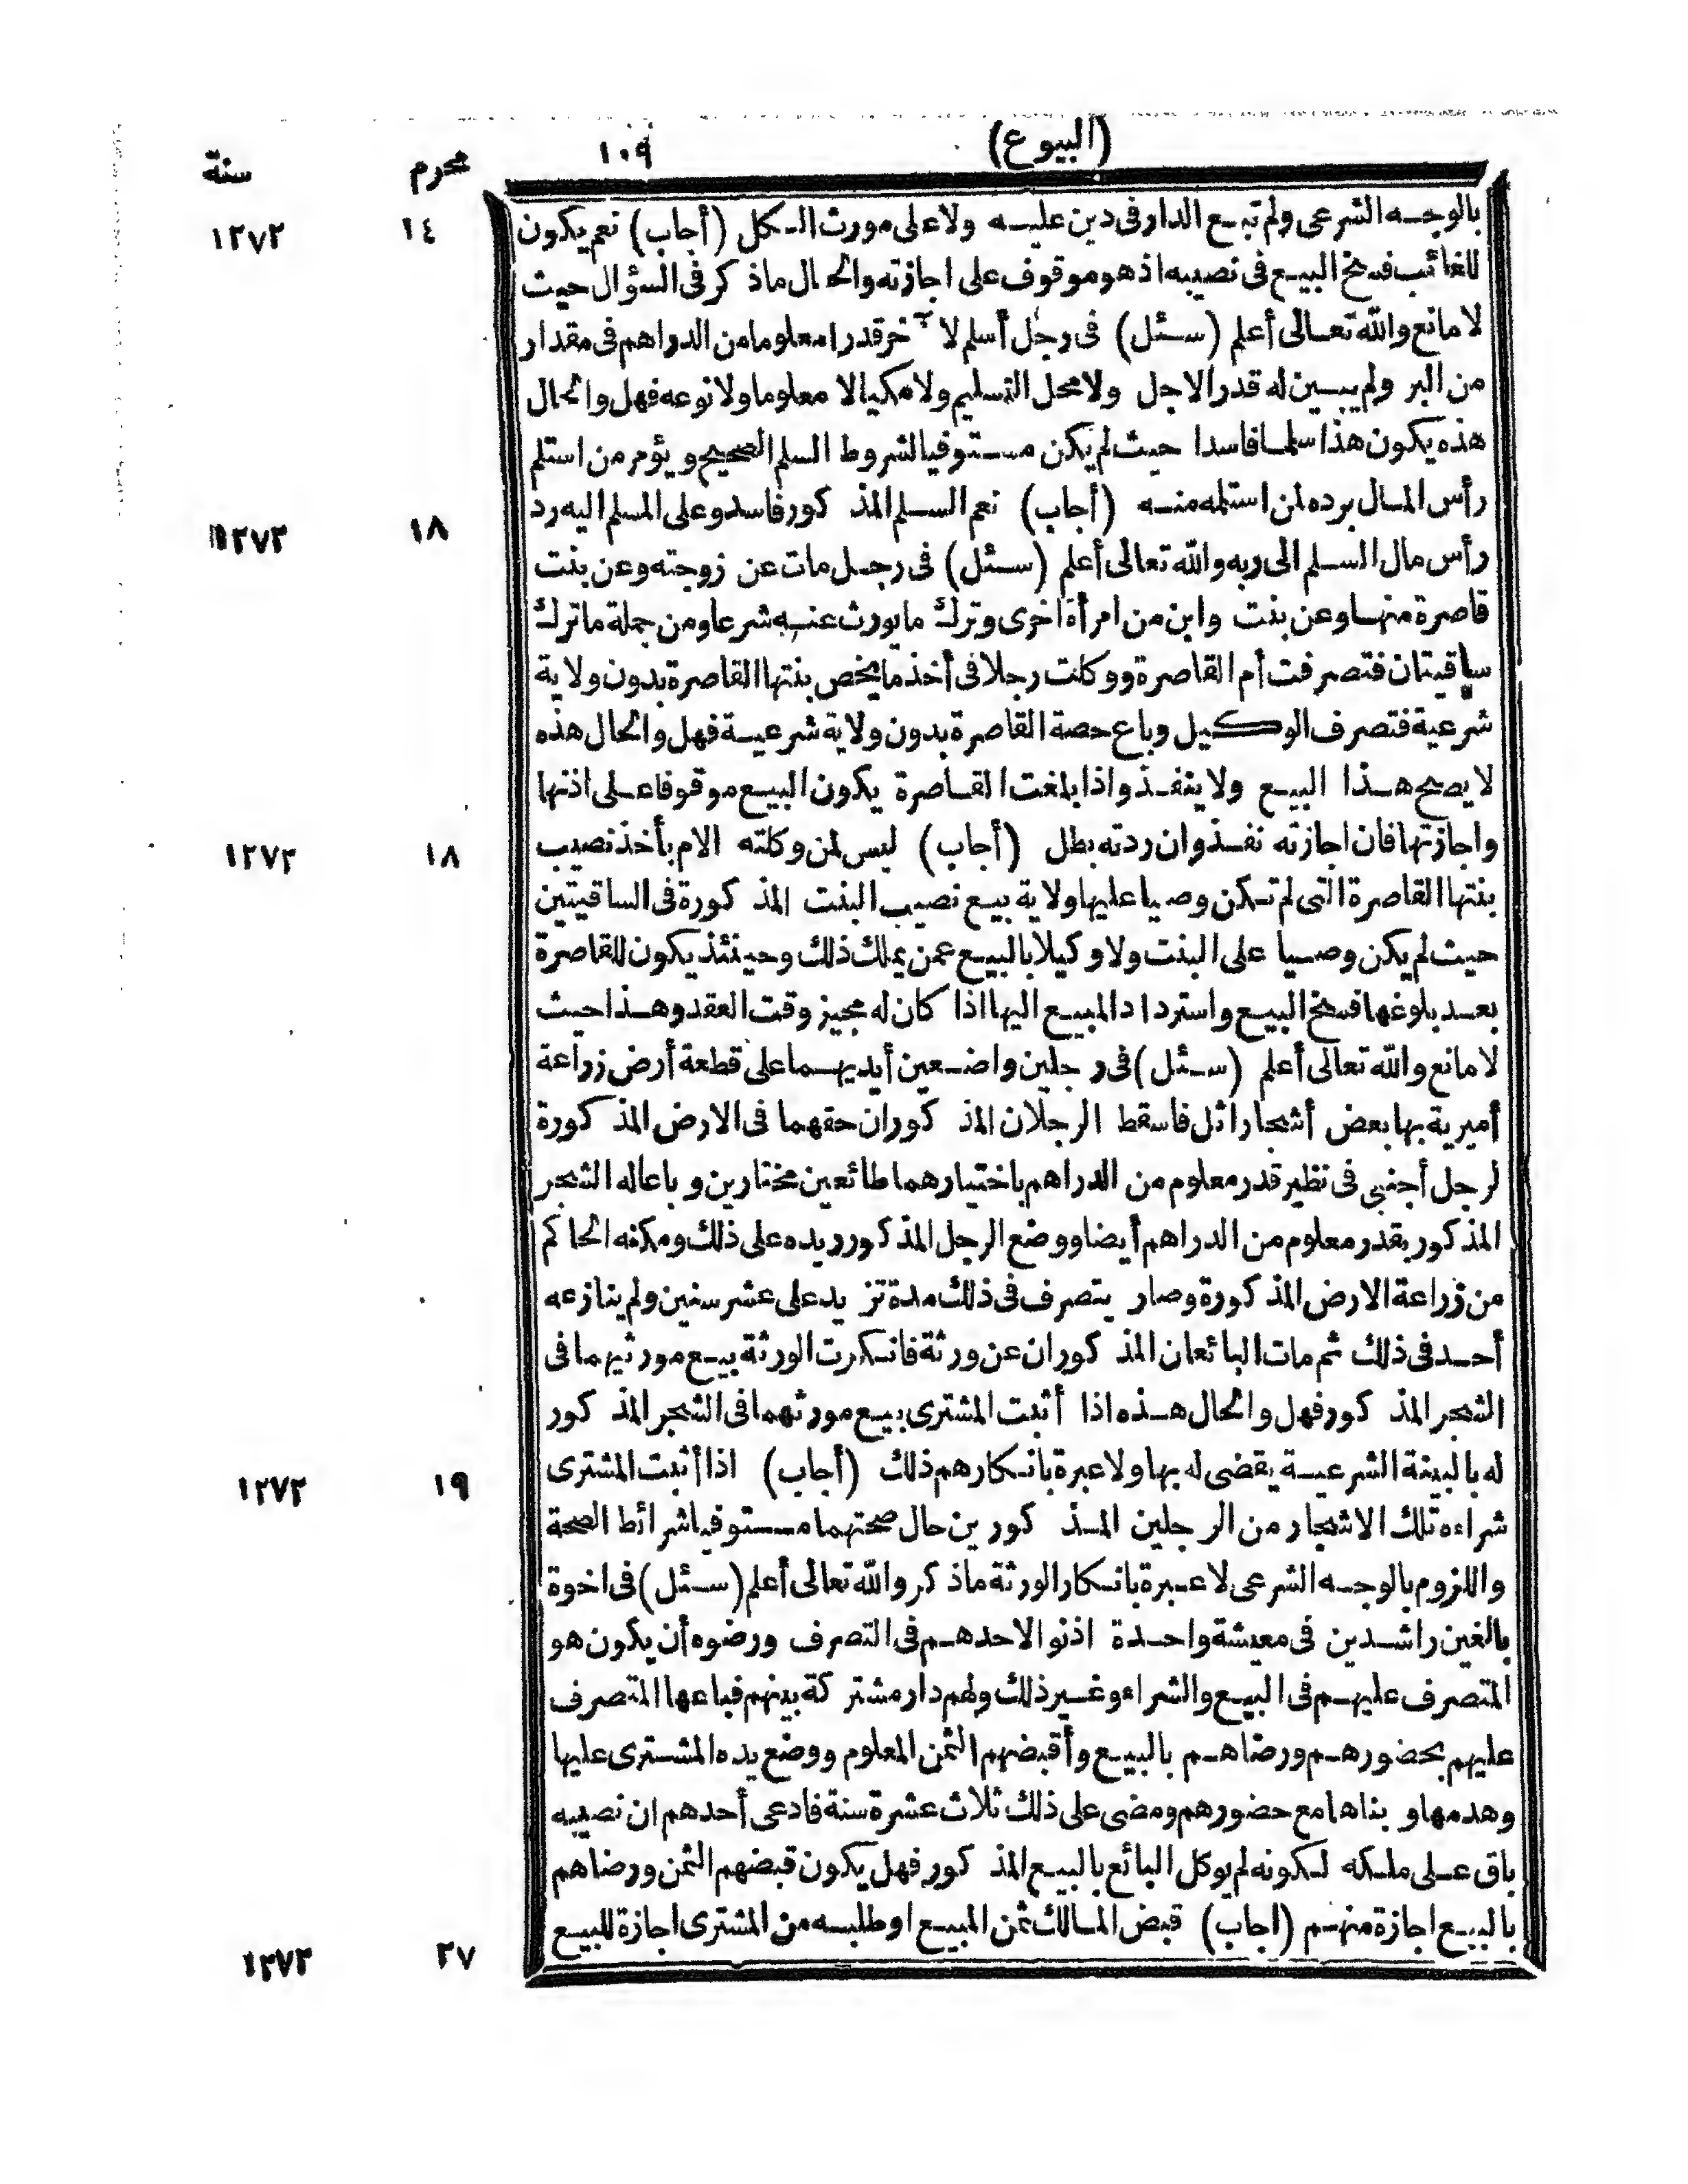 (البيوع)
١٠٩
محرم
سنة
بالوجه الشرعى ولم تبع الدار فى دين عليه ولا على مورث الكل (أجاب) نعم يكون
١٤
١٢٧٣
للغائب فسخ البيع فى نصيبه اذ هو موقوف على اجازته والحال ماذكر فى السؤال حيث
لا مانع والله تعالى أعلم (سئل) فى رجل أسلم لآخر قدرا معلوما من الدراهم فى مقدار
من البر ولم يبين له قدر الاجل ولا محل التسليم ولا مكيالا معلوما ولا نوعه فهل والحال
هذه يكون هذا سلما فاسدا حيث لم يكن مستوفيا لشروط السلم الصحيح ويؤمر من استلم
رأس المال برده لمن استلمه منه (أجاب) نعم السلم المذكور فاسد وعلى المسلم اليه رد
١٨
١٢٧٣
رأس مال السلم الى ربه والله تعالى أعلم (سئل) فى رجل مات عن زوجته وعن بنت
قاصرة منها وعن بنت وابن من امرأة اخرى وترك ما يورث عنه شرعا ومن جملة ماترك
ساقيتان فتصرفت أم القاصرة ووكلت رجلا فى أخذ ما يخص بنتها القاصرة بدون ولاية
شرعية فتصرف الوكيل وباع حصة القاصرة بدون ولاية شرعية فهل والحال هذه
لا يصح هذا البيع ولا ينفذ واذا بلغت القاصرة يكون البيع موقوفا على اذنها
واجازتها فان اجازته نفذ وان ردته بطل (أجاب) ليس لمن وكلته الام بأخذ نصيب
١٨
١٢٧٣
بنتها القاصرة التى لم تكن وصيا عليها ولاية بيع نصيب البنت المذكورة فى الساقيتين
حيث لم يكن وصيا على البنت ولا وكيلا بالبيع عمن يملك ذلك وحينئذ يكون للقاصرة
بعد بلوغها فسخ البيع واسترداد المبيع اليها اذا كان له مجيز وقت العقد وهذا حيث
لا مانع والله تعالى أعلم (سئل) فى رجلين واضعين أيديهما على قطعة أرض زراعة
أميرية بها بعض أشجار اثل فاسقط الرجلان المذكوران حقهما فى الارض المذكورة
لرجل أجنبى فى نظير قدر معلوم من الدراهم باختيارهما طائعين مختارين وباعاله الشجر
المذكور بقدر معلوم من الدراهم أيضا ووضع الرجل المذكور يده على ذلك ومكنه الحاكم
من زراعة الارض المذكورة وصار يتصرف فى ذلك مدة تزيد على عشر سنين ولم ينازعه
أحد فى ذلك ثم مات البائعان المذكوران عن ورثة فانكرت الورثة بيع مورثيهما فى
الشجر المذكور فهل والحال هذه اذا أثبت المشترى بيع مورثهما فى الشجر المذكور
له بالبينة الشرعية يقضى له بها ولا عبرة بانكارهم ذلك (أجاب) اذا أثبت المشترى
١٩
١٢٧٣
شراءه تلك الاشجار من الرجلين المذكورين حال صحتهما مستوفيا شرائط الصحة
واللزوم بالوجه الشرعى لا عبرة بانكار الورثة ماذكر والله تعالى أعلم (سئل) فى اخوة
بالغين راشدين فى معيشة واحدة اذنوا لاحدهم فى التصرف ورضوه أن يكون هو
المتصرف عليهم فى البيع والشراء وغير ذلك ولهم دار مشتركة بينهم فباعها المتصرف
عليهم بحضورهم ورضاهم بالبيع وأقبضهم الثمن المعلوم ووضع يده المشترى عليها
وهدمها وبناها مع حضورهم ومضى على ذلك ثلاث عشرة سنة فادعى أحدهم ان نصيبه
باق على ملكه لكونه لم يوكل البائع بالبيع المذكور فهل يكون قبضهم الثمن ورضاهم
بالبيع اجازة منهم (اجاب) قبض المالك ثمن المبيع او طلبه من المشترى اجازة للبيع
٢٧
١٢٧٣